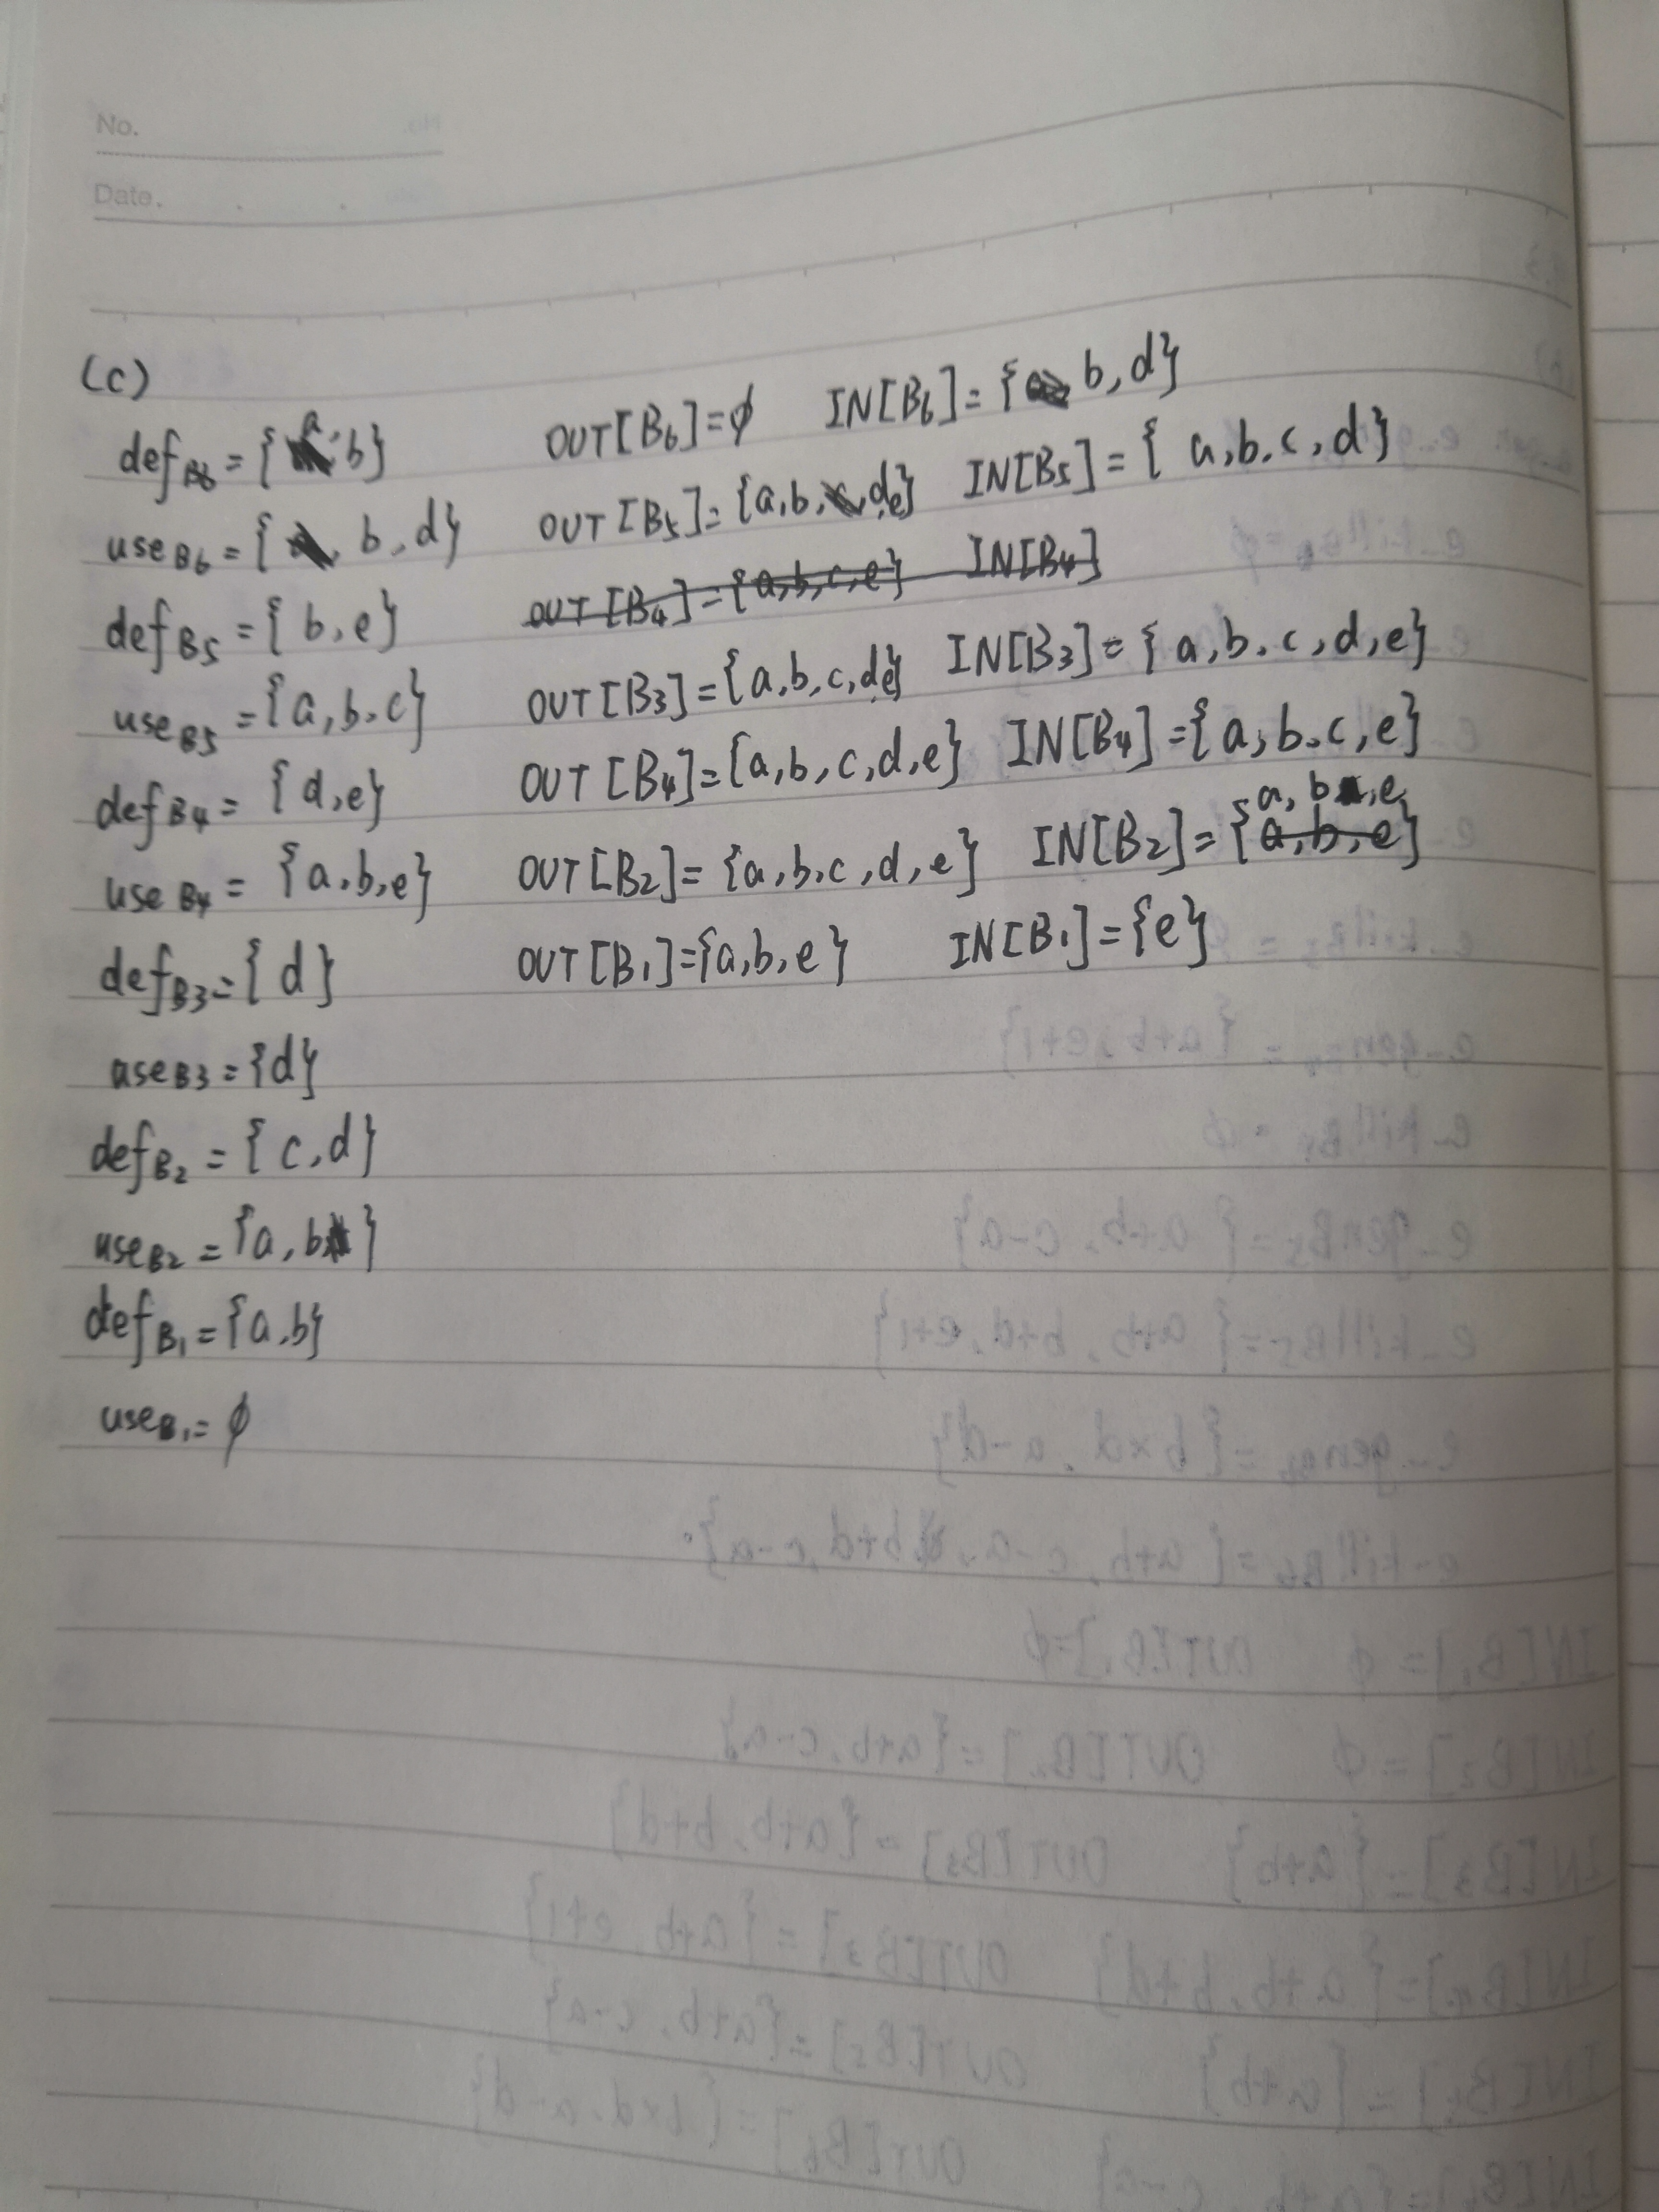 No.
Date.
(c)
def_B6 = {a, b} OUT[B6]=φ IN[B6]={b, d}
use_B6 = {b, d} OUT[B5]={a,b,d,e} IN[B5]={a,b,c,d}
def_B5 = {b, e} OUT[B4]={a,b,c,e} IN[B4]
use_B5 = {a,b,c} OUT[B3]={a,b,c,d,e} IN[B3]={a,b,c,d,e}
def_B4 = {d,e} OUT[B4]={a,b,c,d,e} IN[B4]={a,b,c,e}
use_B4 = {a,b,e} OUT[B2]={a,b,c,d,e} IN[B2]={a,b,e a,b,e}
def_B3={d} OUT[B1]={a,b,e} IN[B1]={e}
use_B3={d}
def_B2={c,d}
use_B2={a,b}
def_B1={a,b}
use_B1=φ